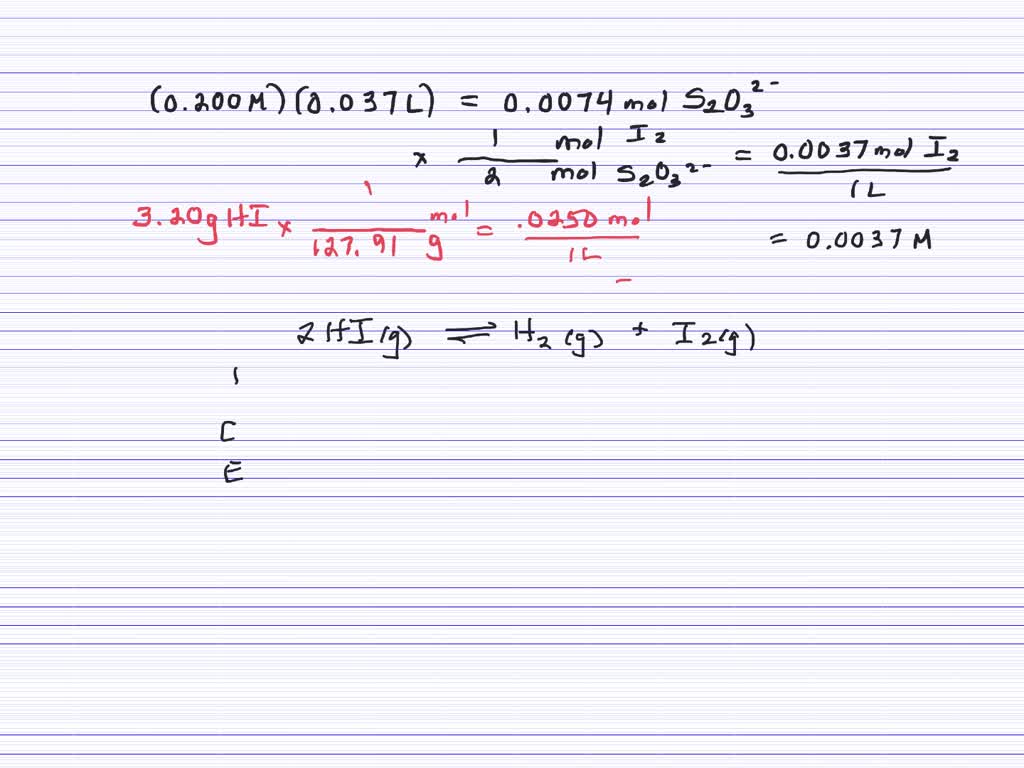 (0.200M)(0.037L) = 0.0074 mol S₂O₃²⁻
× 1 mol I₂ / 2 mol S₂O₃²⁻ = 0.0037 mol I₂ / 1L
3.20g HI × 1 mol / 127.91 g = .0250 mol / 1L
= 0.0037 M
2HI(g) ⇌ H₂(g) + I₂(g)
I
C
E